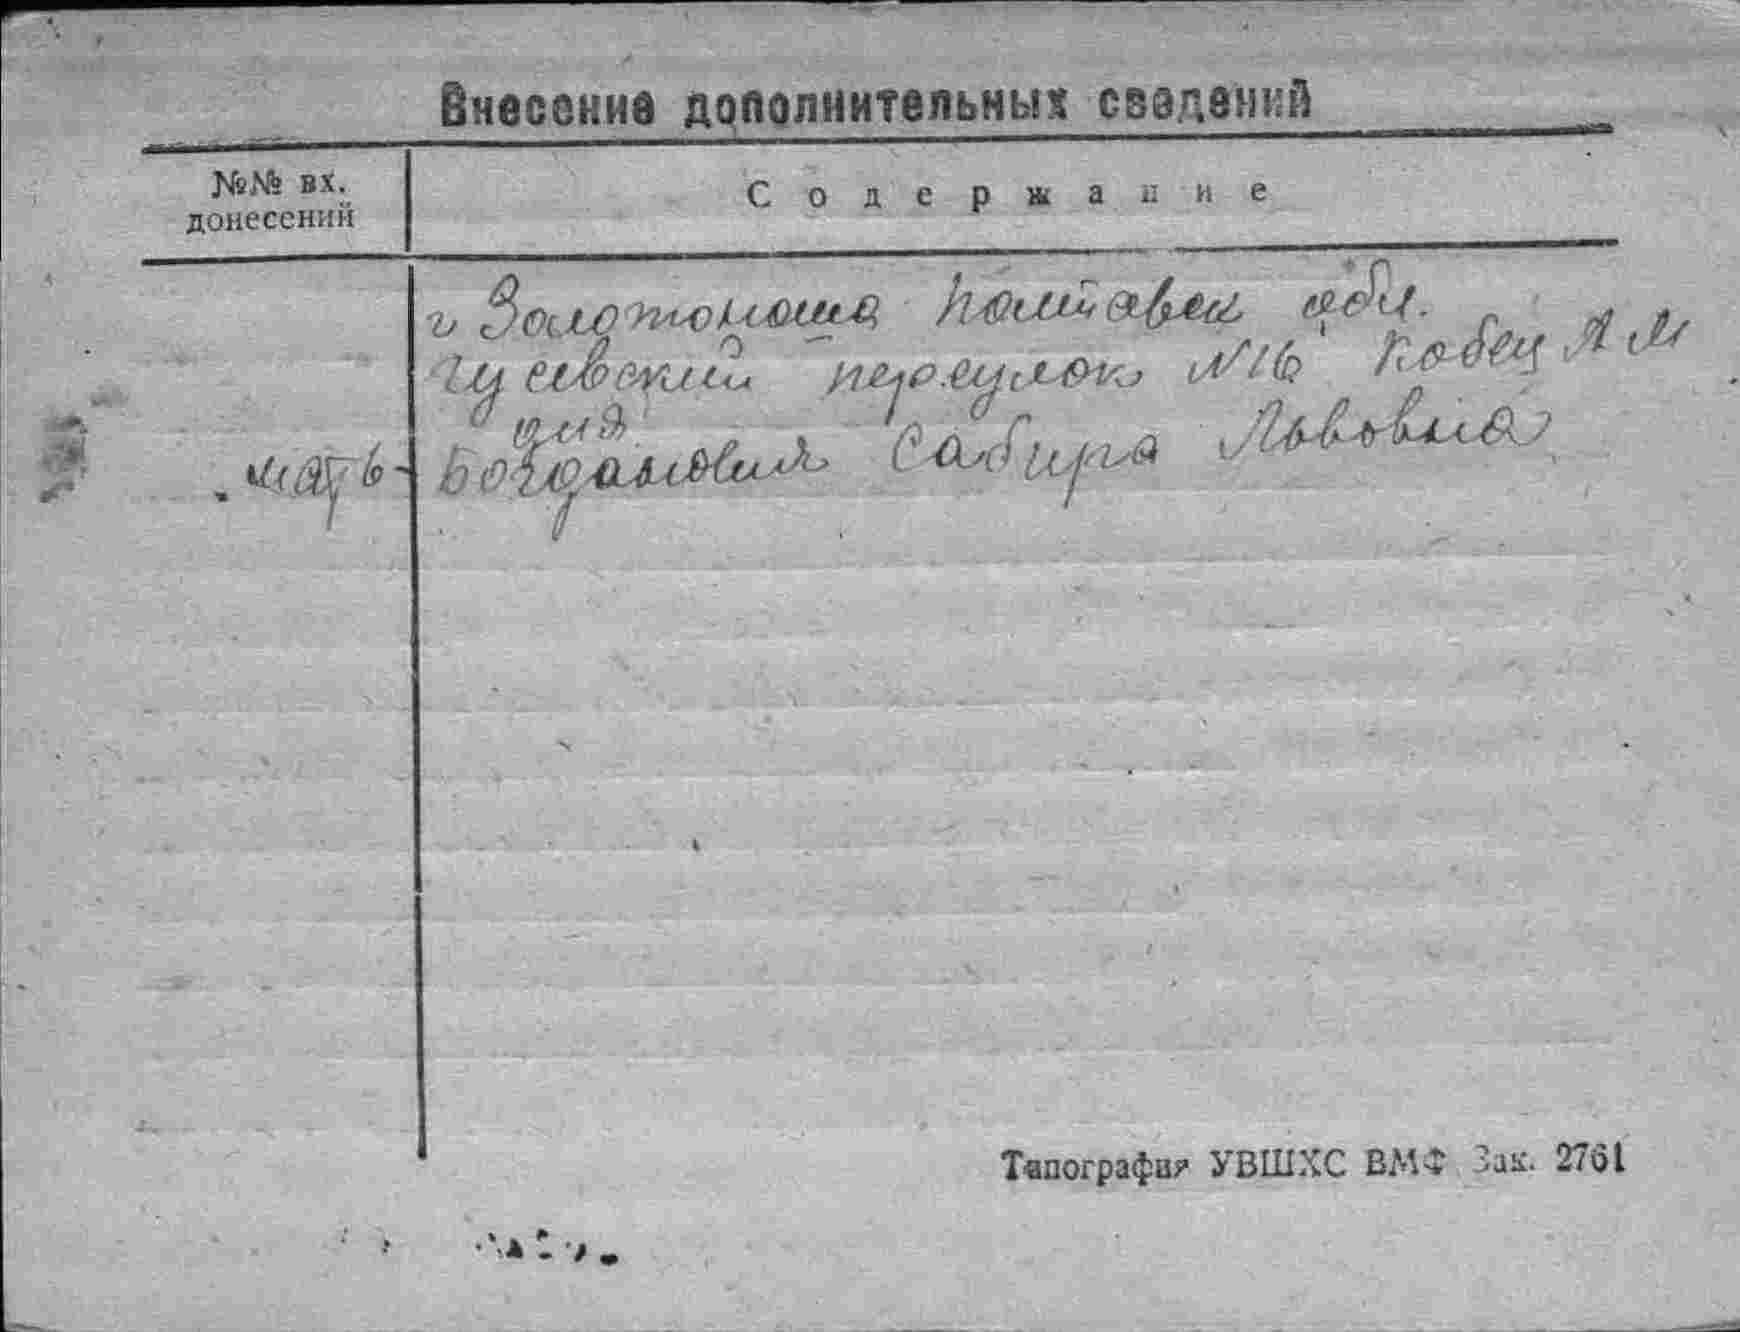 Внесение дополнительных сведений
№№ вх. донесений
Содержание
г Золотоноша Полтавск обл.
Гусевский переулок №16 Кобец А М
для
мать - Богданович Сабира Львовна
Типография УВШХС ВМФ Зак. 2761